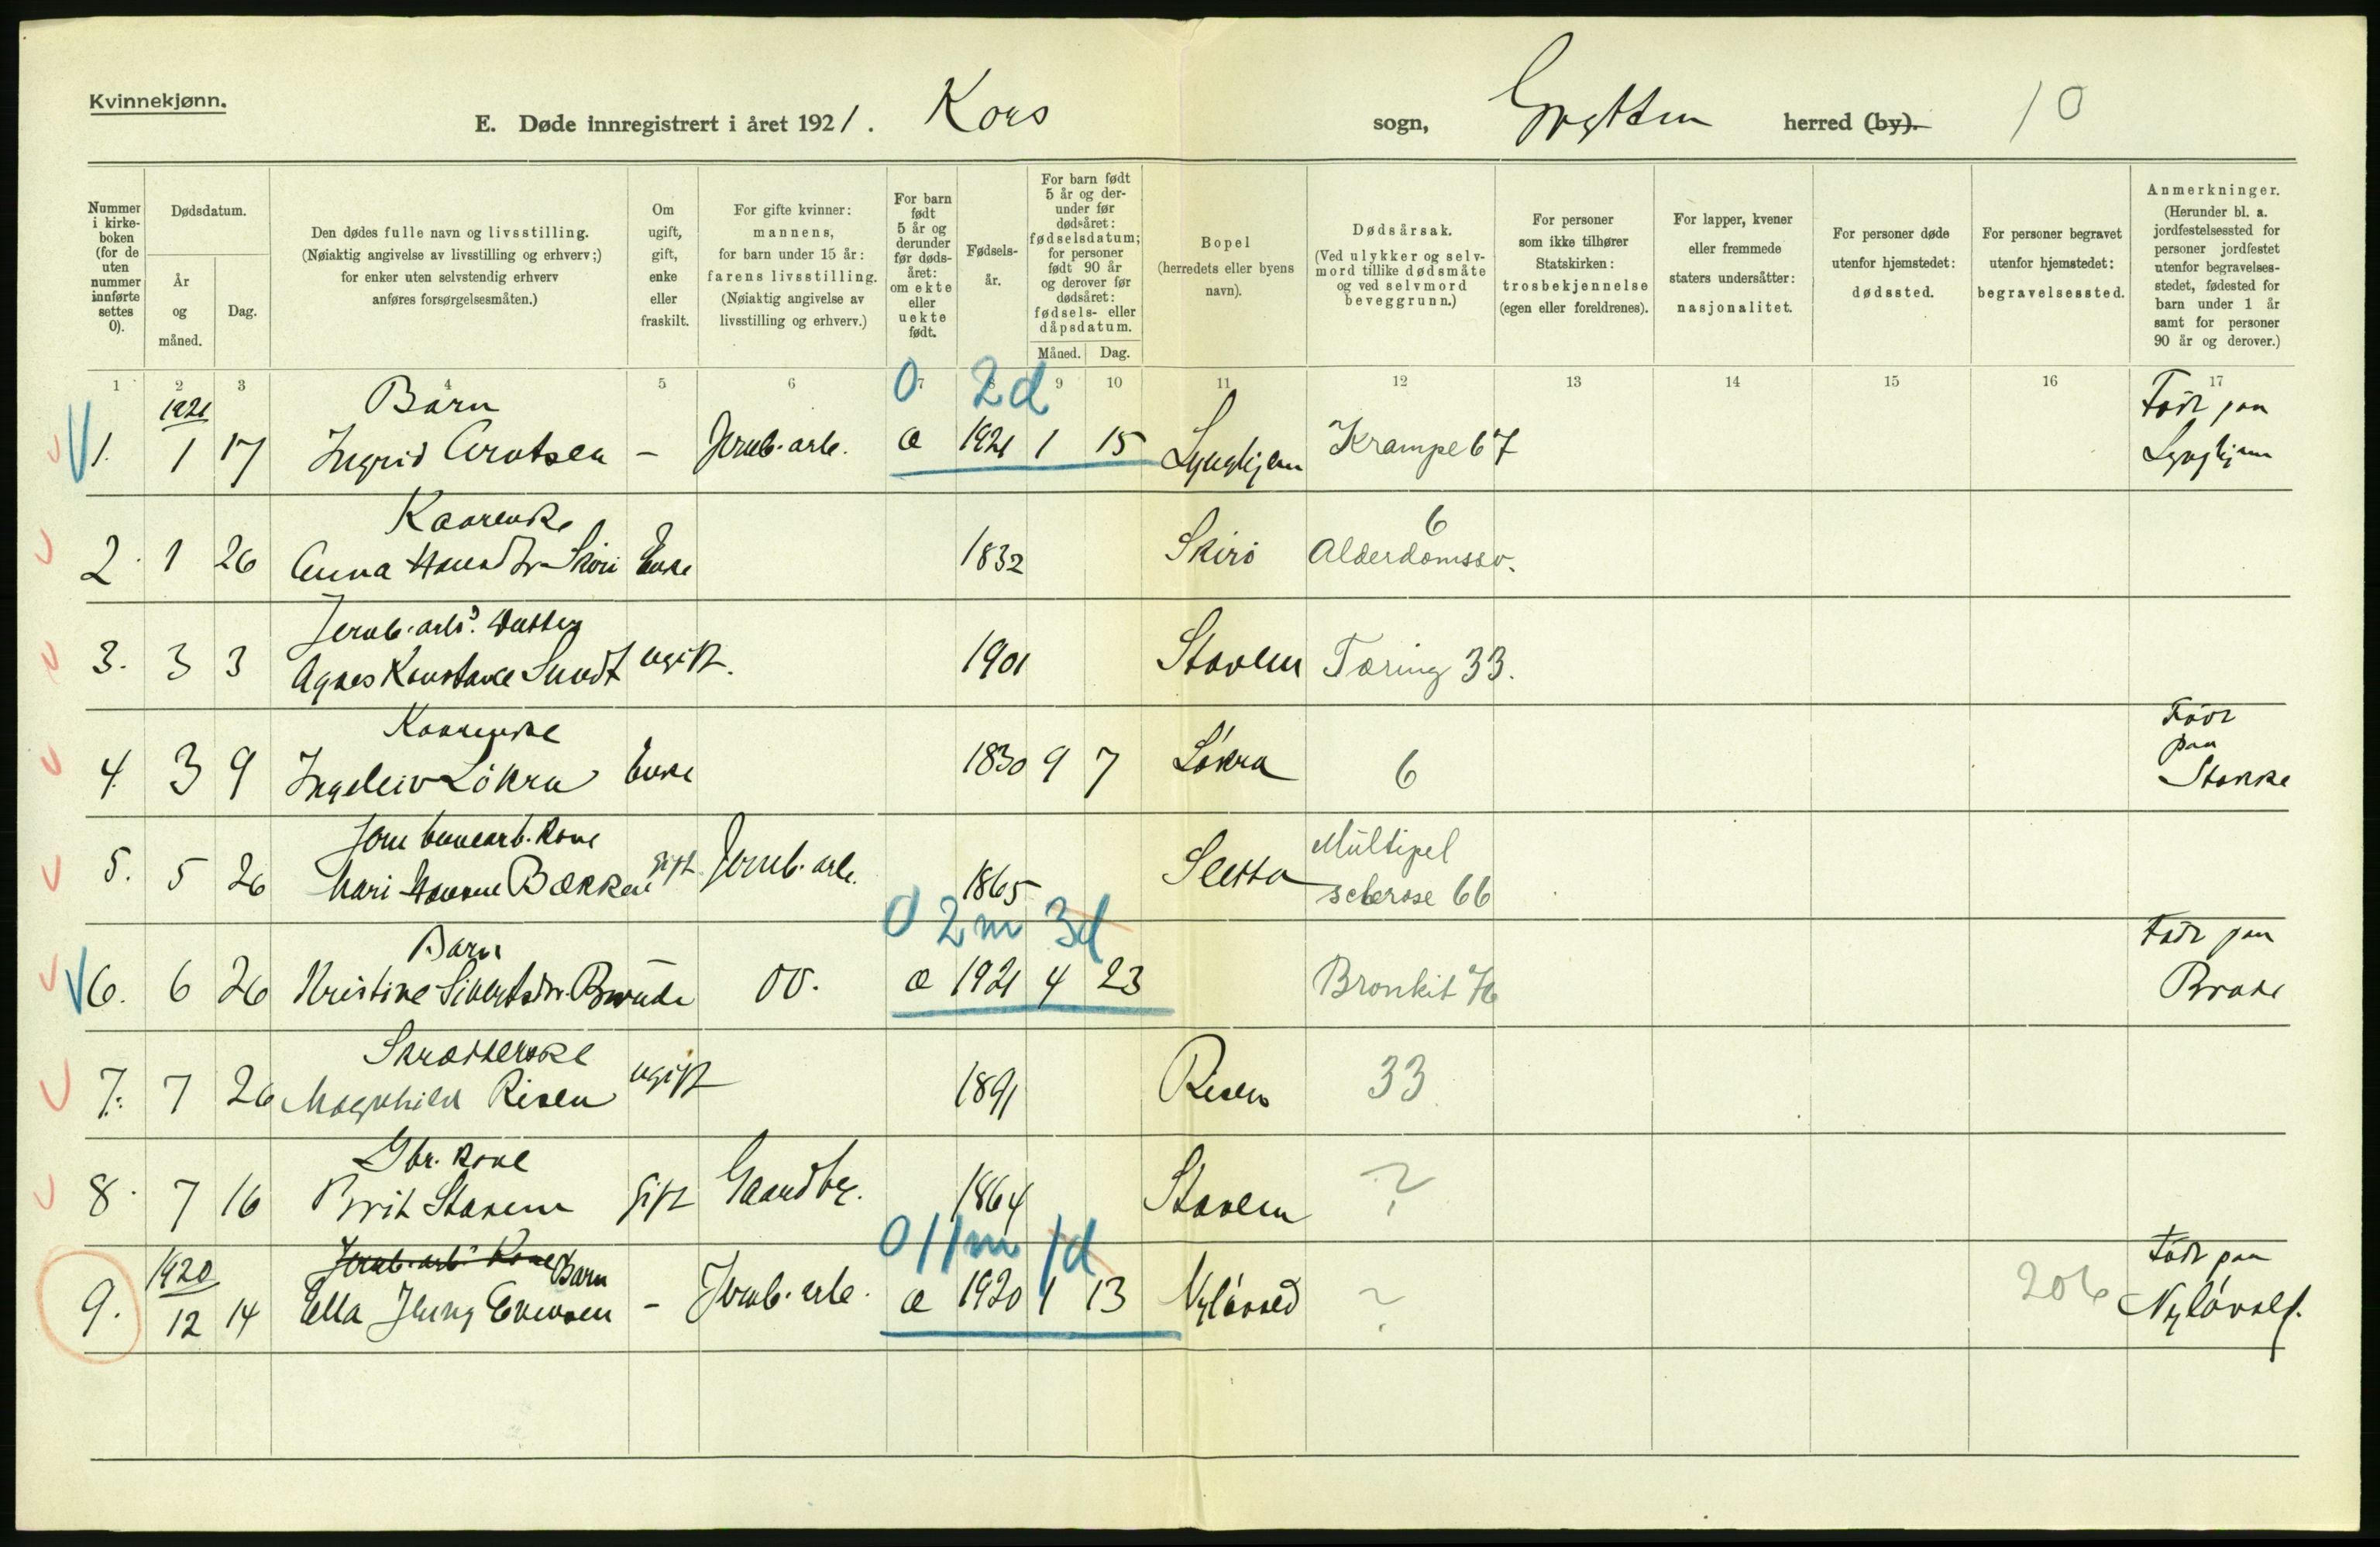 Kvinnekjønn.
E. Døde innregistrert i året 1921. Kors sogn, Grytten herred (by). 10
Nummer i kirke-boken (for de uten nummer innførte settes 0).
Dødsdatum.
År og måned.
Dag.
Den dødes fulle navn og livsstilling.
(Nøiaktig angivelse av livsstilling og erhverv;)
for enker uten selvstendig erhverv
anføres forsørgelsesmåten.)
Om ugift, gift, enke eller fraskilt.
For gifte kvinner:
mannens,
for barn under 15 år:
farens livsstilling.
(Nøiaktig angivelse av
livsstilling og erhverv.)
For barn født 5 år og derunder før døds-året: om ekte eller uekte født.
Fødsels-år.
For barn født 5 år og der-under før dødsåret: fødselsdatum; for personer født 90 år og derover før dødsåret: fødsels- eller dåpsdatum.
Måned. Dag.
Bopel
(herredets eller byens
navn).
Dødsårsak.
(Ved ulykker og selv-
mord tillike dødsmåte
og ved selvmord
beveggrunn.)
For personer
som ikke tilhører
Statskirken:
trosbekjennelse
(egen eller foreldrenes).
For lapper, kvener
eller fremmede
staters undersåtter:
nasjonalitet.
For personer døde
utenfor hjemstedet:
dødssted.
For personer begravet
utenfor hjemstedet:
begravelsessted.
Anmerkninger.
(Herunder bl. a.
jordfestelsessted for
personer jordfestet
utenfor begravelses-
stedet, fødested for
barn under 1 år
samt for personer
90 år og derover.)
1 2 3 4 5 6 7 8 9 10 11 12 13 14 15 16 17
1921 Barn 0 2d Født paa
1. 1 17 Ingrid Arntsen - Jernb. arb. æ 1921 1 15 Lynghjem Krampe 67 Lynghjem
Kaarenke 6
2. 1 26 Anna Skiri Enke 1832 Skiri Alderdomssv.
Jernb. arb.s Datter
3. 3 3 Agnes Konstance Sundt ugift. 1901 Stavem Tæring 33.
Kaarenke Født paa
4. 3 9 Ingeleiv Løkra Enke 1830 9 7 Løkra 6 Stokke
Jernbanearb. kone Multipel
5. 5 26 Mari Bakken gift Jernb. arb. 1865 Sletta sclerose 66
Barn 0 2m 3d Født paa
6. 6 26 Kristine Sivertsdtr. Brude OO. æ 1921 4 23 Bronkit 76 Brude
Skrædderske
7. 7 26 Magnhild Risen ugift 1891 Risen 33
Gbr. kone
8. 7 16 Brit Stavem gift Gaardbr. 1864 Stavem ?
1920 Jernb. arb.s Kone Barn 0 11m 1d Født paa
9. 12 14 Ella Jenny Evensen - Jernb. arb. æ 1920 1 13 ? 206